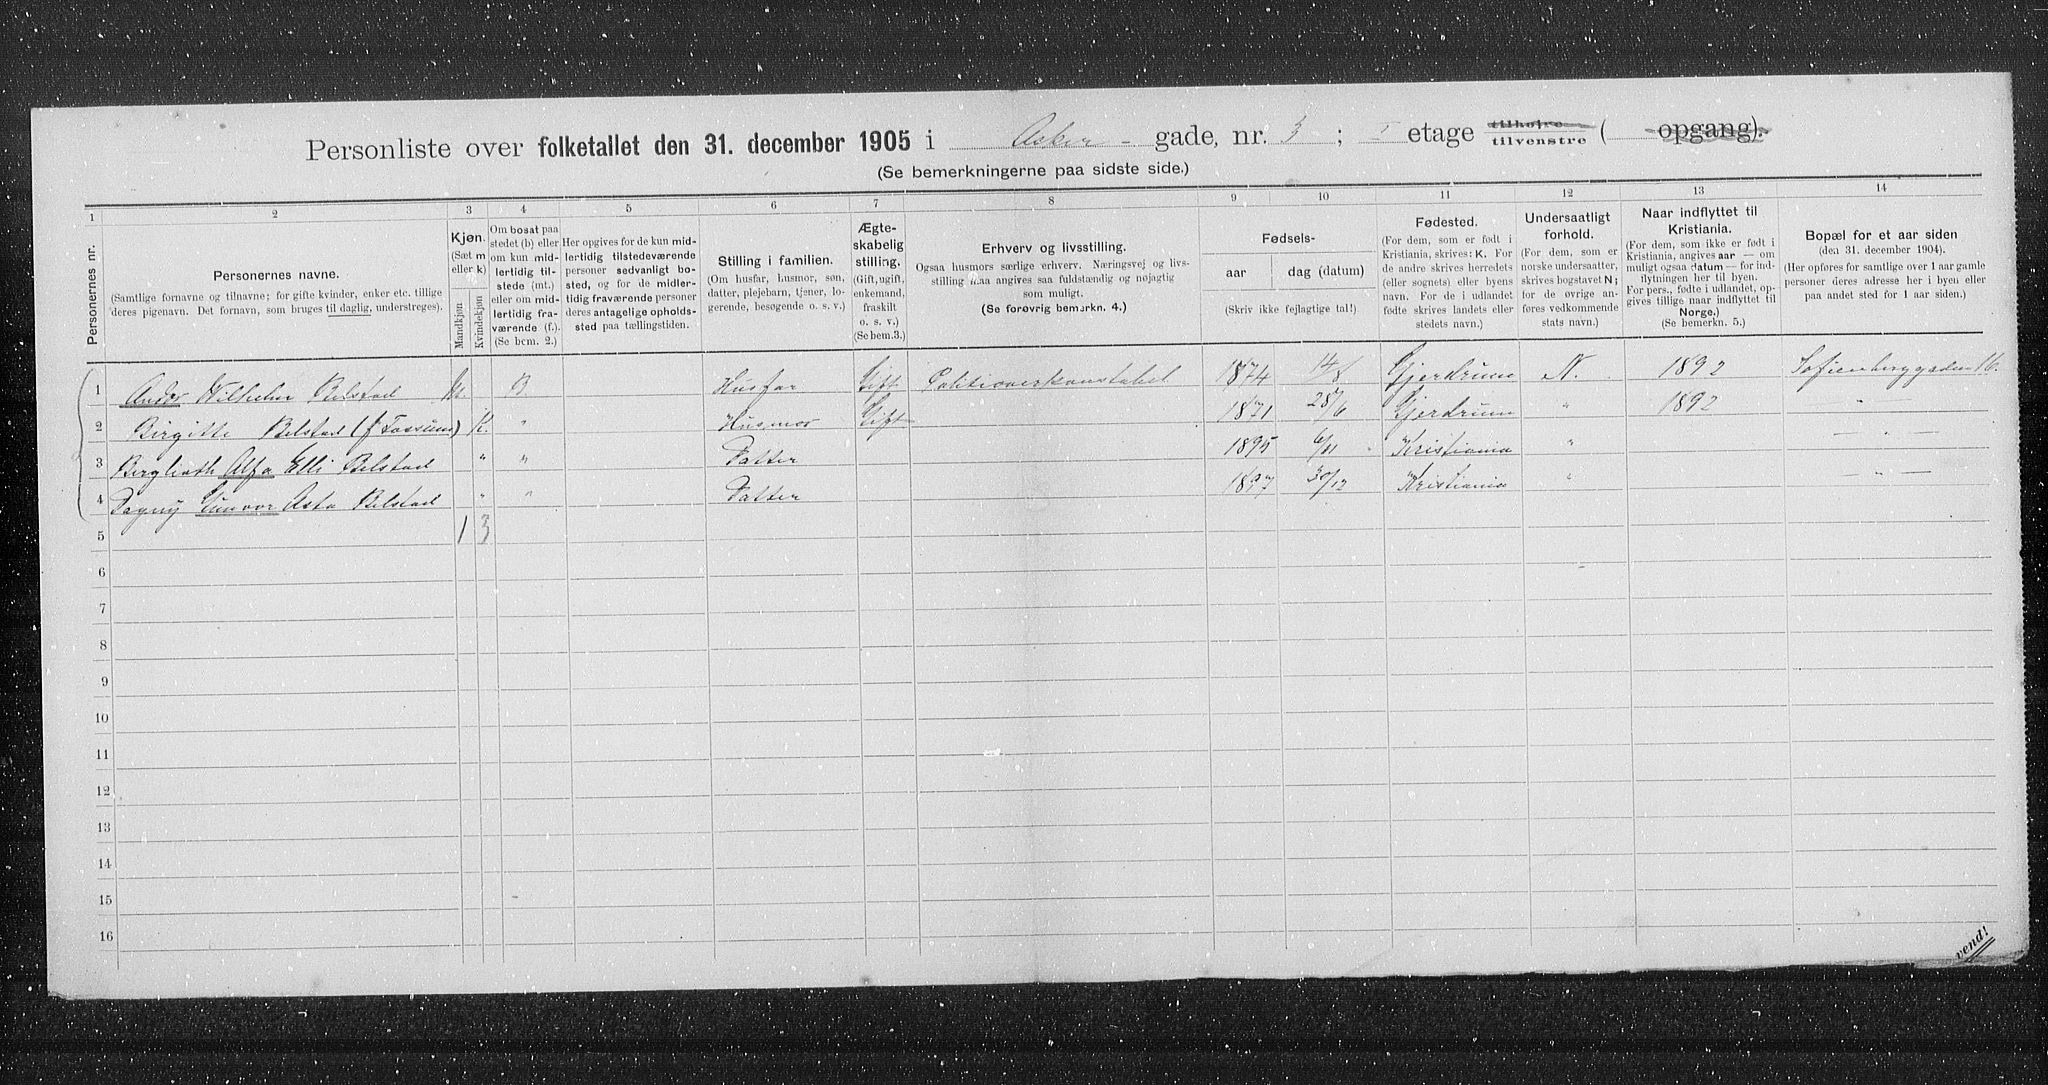 Personliste over folketallet den 31. december 1905 i Asker - gade, nr. 3 ; I etage tilhøire tilvenstre ( opgang).
(Se bemerkningerne paa sidste side.)
1 2 3 4 5 6 7 8 9 10 11 12 13 14
Personernes nr.
Personernes navne.
(Samtlige fornavne og tilnavne; for gifte kvinder, enker etc. tillige deres pigenavn. Det fornavn, som bruges til daglig, understreges).
Kjøn.
(Sæt m eller k)
Mandkjøn
Kvindekjøn
Om bosat paa stedet (b) eller om kun midlertidig tilstede (mt.) eller om midlertidig fraværende (f.) (Se bem. 2.)
Her opgives for de kun midlertidig tilstedeværende personer sedvanligt bosted, og for de midlertidig fraværende personer deres antagelige opholdssted paa tællingstiden.
Stilling i familien.
(Om husfar, husmor, søn, datter, plejebarn, tjener, logerende, besøgende o. s. v.)
Ægteskabelig stilling.
(Gift, ugift, enkemand, fraskilt o. s. v.)
(Se bem.3.)
Erhverv og livsstilling.
Ogsaa husmors særlige erhverv. Næringsvej og livsstilling maa angives saa fuldstændig og nøjagtig som muligt.
(Se forøvrig bemerkn. 4.)
Fødsels-
aar dag (datum)
(Skriv ikke fejlagtige tal!)
Fødested.
(For dem, som er født i Kristiania, skrives: K. For de andre skrives herredets (eller sognets) eller byens navn. For de i udlandet fødte skrives landets eller stedets navn.)
Undersaatligt forhold.
(For dem, som er norske undersaatter, skrives bogstavet N; for de øvrige anføres vedkommende stats navn.)
Naar indflyttet til Kristiania.
(For dem, som ikke er født i Kristiania, angives aar — om muligt ogsaa datum — for indflytningen her til byen. For pers., født i udlandet, opgives tillige naar indflyttet til Norge.)
(Se bemerkn. 5.)
Bopæl for et aar siden
(den 31. december 1904).
(Her opføres for samtlige over 1 aar gamle personer deres adresse her i byen eller paa andet sted for 1 aar siden.)
1 Andor Wilhelm Belstad M. B Husfar Gift Politioverkonstabel 1874 14/8 Gjerdrum N. 1892 Sofienberggaden 16.
2 Birgitte Belstad (f Fossum) K. " Husmor Gift 1871 25/6 Gjerdrum " 1892 — " —
3 Berglioth Alfa Elli Belstad " " Datter 1895 6/11 Kristiania " — " —
4 Dagny Gunvor Asta Belstad " " Datter 1897 30/12 Kristiania " — " —
5 1 3
6
7
8
9
10
11
12
13
14
15
16
vend!